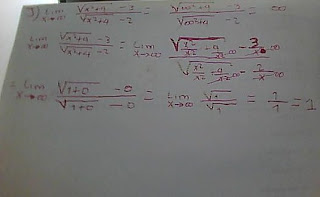 3) Lim x→∞ √(x²+4) - 3 / √(x²+4) - 2 = √(∞²+4) - 3 / √(∞²+4) - 2 = ∞
Lim x→∞ √(x²+4) - 3 / √(x²+4) - 2 = Lim x→∞ √(x²/x² + 4/x²) - 3/x / √(x²/x² + 4/x²) - 2/x
Lim x→∞ √(1+0) - 0 / √(1+0) - 0 = Lim x→∞ √1 / √1 = 1/1 = 1